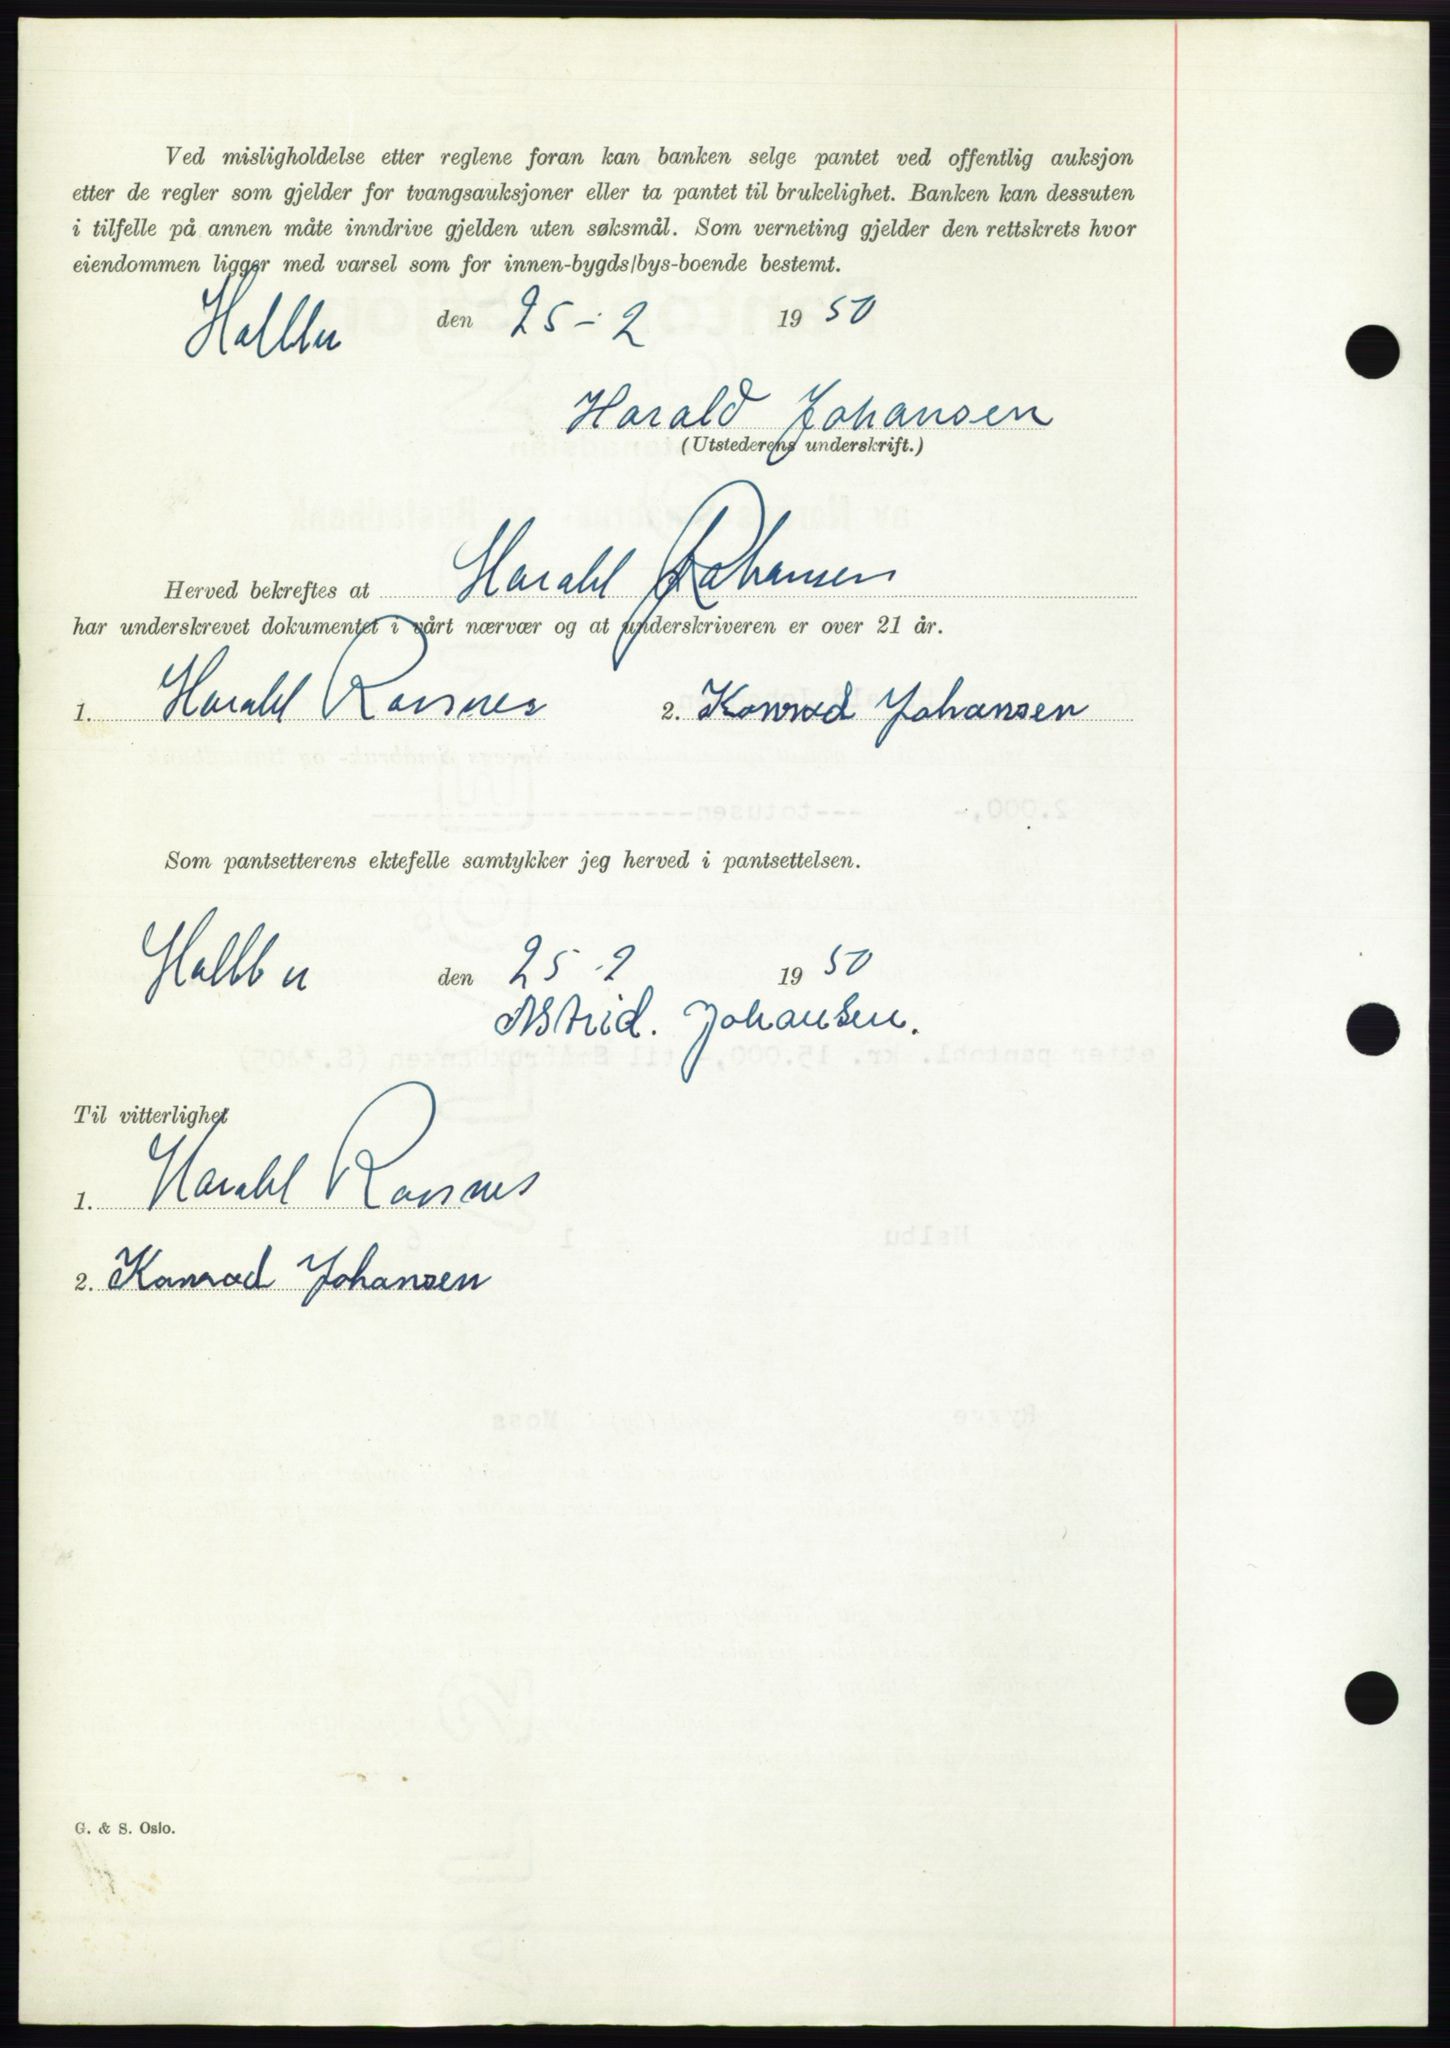 Ved misligholdelse etter reglene foran kan banken selge pantet ved offentlig auksjon
etter de regler som gjelder for tvangsauksjoner eller ta pantet til brukelighet. Banken kan dessuten
i tilfelle på annen måte inndrive gjelden uten søksmål. Som verneting gjelder den rettskrets hvor
eiendommen ligger med varsel som for innen-bygds/bys-boende bestemt.
den 25-2 1950
Harald Johansen
(Utstederens underskrift.)
Herved bekreftes at Harald Johansen
har underskrevet dokumentet i vårt nærvær og at underskriveren er over 21 år.
1. Harald 2. Konrad Johansen
Som pantsetterens ektefelle samtykker jeg herved i pantsettelsen.
den 25-2 1950
Astrid. Johansen.
Til vitterlighet
1. Harald
2. Konrad Johansen
G. & S. Oslo.